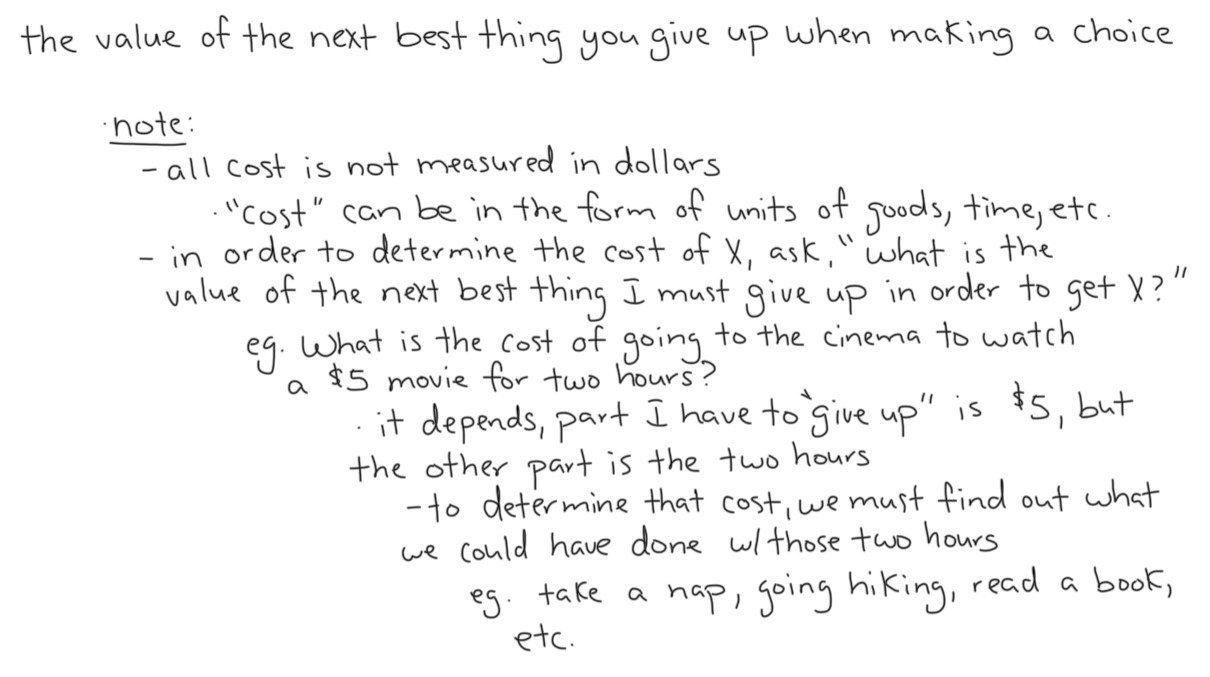 the value of the next best thing you give up when making a choice
·note:
- all cost is not measured in dollars
·"cost" can be in the form of units of goods, time, etc.
- in order to determine the cost of X, ask, "what is the
value of the next best thing I must give up in order to get X?"
eg. What is the cost of going to the cinema to watch
a $5 movie for two hours?
· it depends, part I have to "give up" is $5, but
the other part is the two hours
- to determine that cost, we must find out what
we could have done w/ those two hours
eg. take a nap, going hiking, read a book,
etc.